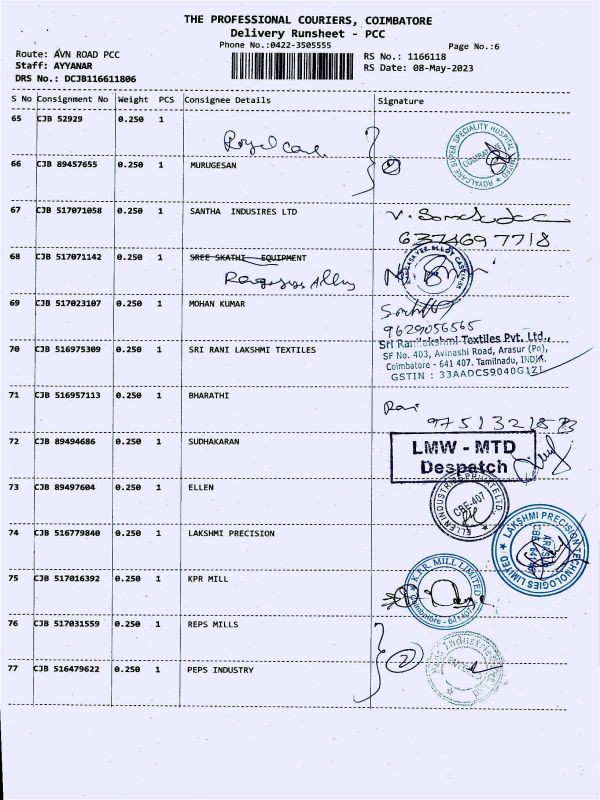 THE PROFESSIONAL COURIERS, COIMBATORE
Delivery Runsheet - PCC
Phone No.:0422-3505555
Page No.:6
Route: AVN ROAD PCC
Staff: AYYANAR
DRS No.: DCJB116611806
RS No.: 1166118
RS Date: 08-May-2023
S No Consignment No Weight PCS Consignee Details Signature
65 CJB 52929 0.250 1
Royal Care
SUPER SPECIALITY HOSPITAL LIMITED ★ ROYALCARE
66 CJB 89457655 0.250 1 MURUGESAN
2
67 CJB 517071058 0.250 1 SANTHA INDUSIRES LTD
6374697718
68 CJB 517071142 0.250 1 SREE SKATHI EQUIPMENT
Alloy
69 CJB 517023107 0.250 1 MOHAN KUMAR
9629056565
70 CJB 516975309 0.250 1 SRI RANI LAKSHMI TEXTILES
Sri Ranilakshmi Textiles Pvt. Ltd.,
SF No. 403, Avinashi Road, Arasur (Po),
Coimbatore - 641 407. Tamilnadu, INDIA.
GSTIN : 33AADCS9040G1ZI
71 CJB 516957113 0.250 1 BHARATHI
72 CJB 89494686 0.250 1 SUDHAKARAN
LMW - MTD
Despatch
73 CJB 89497604 0.250 1 ELLEN
ELLEN INDUSTRIES PRIVATE LTD.
CBE-407
74 CJB 516779840 0.250 1 LAKSHMI PRECISION
LAKSHMI PRECISION TECHNOLOGIES LIMITED ★
75 CJB 517016392 0.250 1 KPR MILL
K.P.R. MILL LIMITED
Coimbatore - 641407
76 CJB 517031559 0.250 1 REPS MILLS
2
77 CJB 516479622 0.250 1 PEPS INDUSTRY